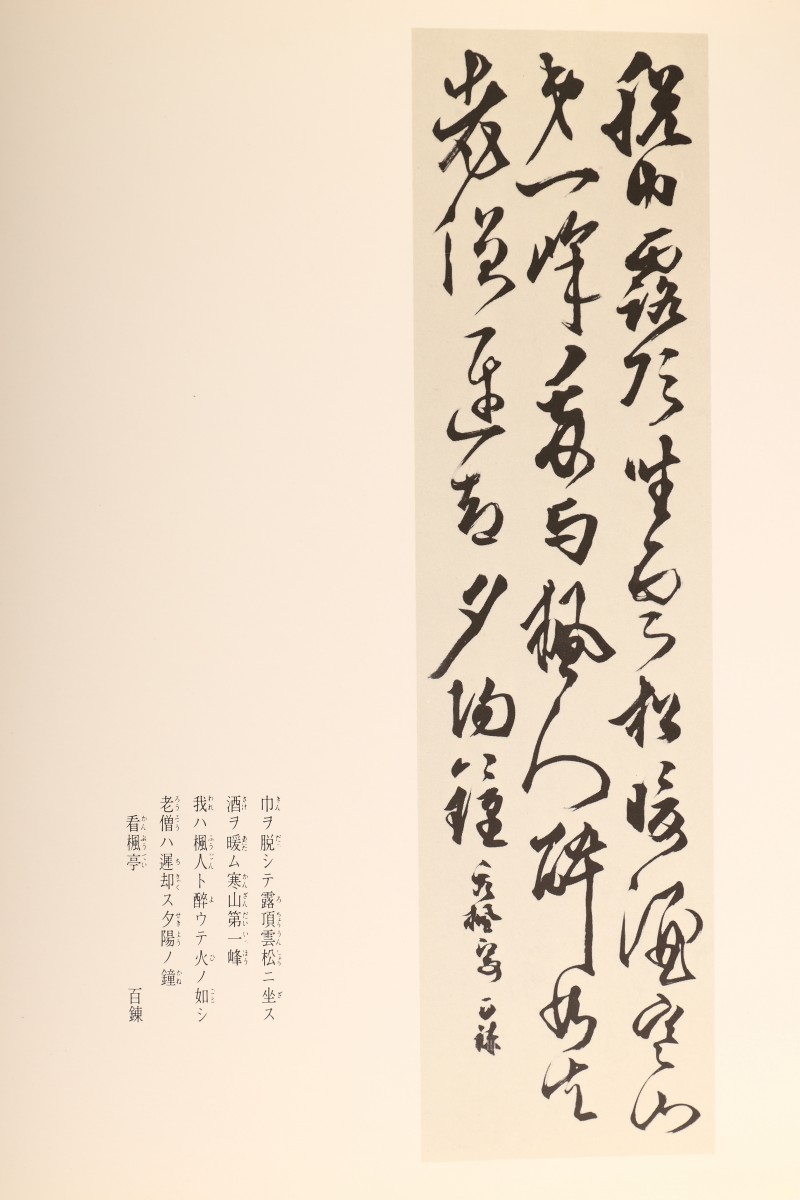 脱巾露頂坐雲松暖酒寒山
第一峰我与楓人酔如火
老僧遅却夕陽鐘 看楓亭 百錬
巾ヲ脱シテ露頂雲松ニ坐ス
酒ヲ暖ム寒山第一峰
我ハ楓人ト醉ウテ火ノ如シ
老僧ハ遲却ス夕陽ノ鐘
看楓亭 百錬